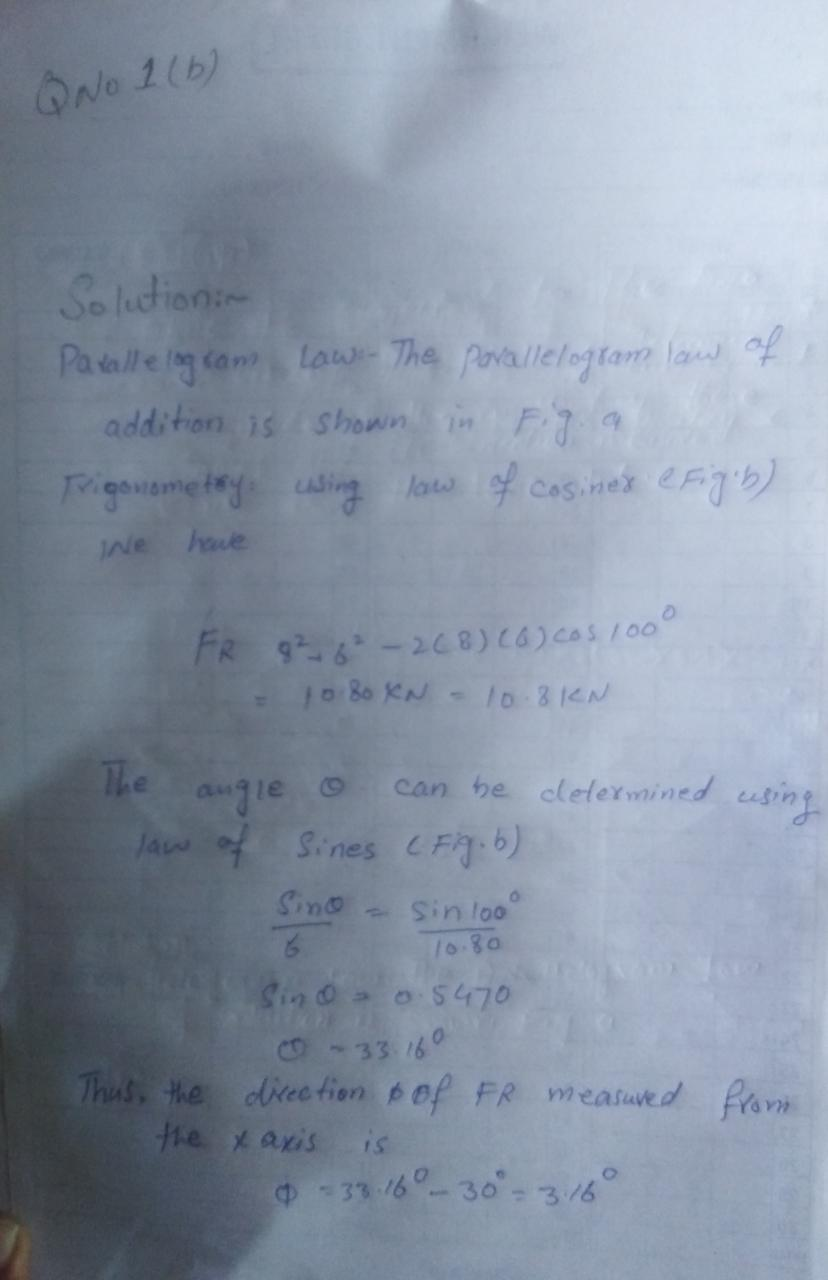 QNo 1(b)
Solution:-
Parallelogram Law:- The Parallelogram law of
addition is shown in Fig. a
Trigonometry: using law of cosines (Fig.b)
We have
FR 8²+6² - 2(8)(6)cos 100°
= 10.80 KN = 10.8 KN
The angle θ can be determined using
law of Sines (Fig.b)
Sinθ/6 = Sin100°/10.80
Sinθ = 0.5470
θ = 33.16°
Thus, the direction ϕ of FR measured from
the x axis is
ϕ = 33.16° - 30° = 3.16°